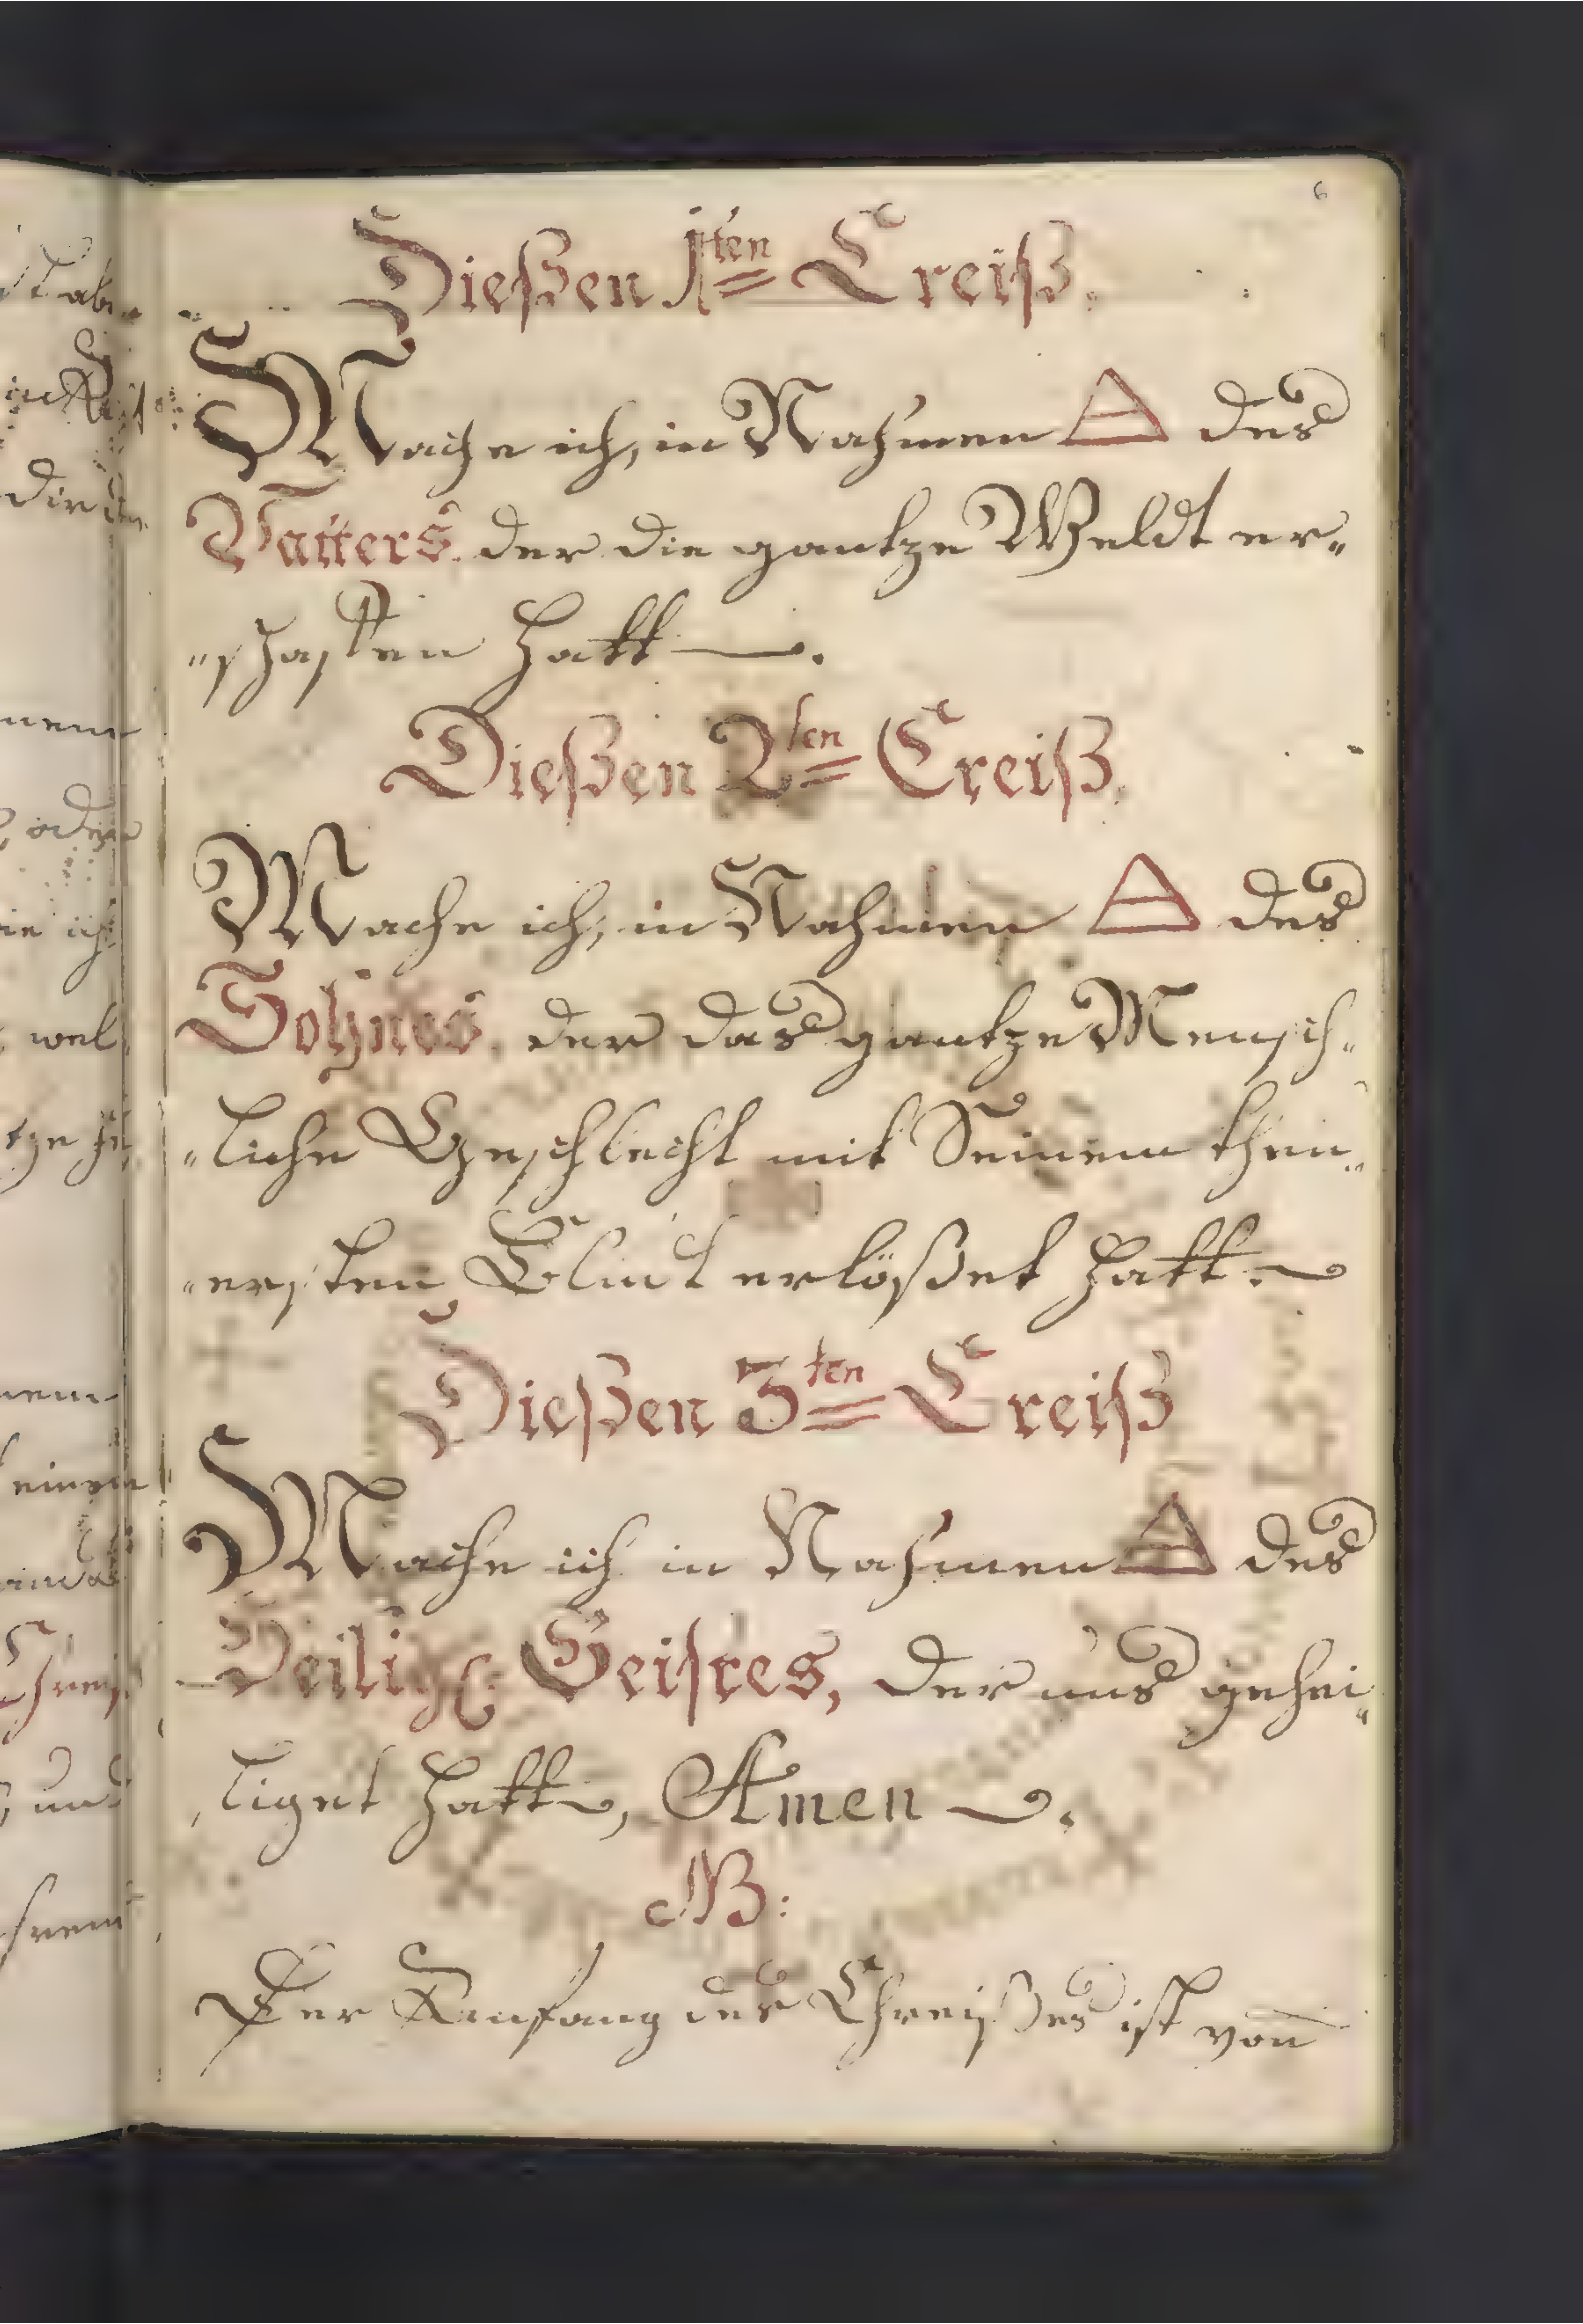 6
Dießen 1ten Creiß.
Mache ich, in Nahmen des
Vatters, der die gantze Weldt er„
„schaffen hatt.
Dießen 2ten Creiß.
Mache ich, in Nahmen des
Sohnes, der das gantze Mensch„
„liche Geschlecht mit Seinem theu„
„ersten Bluht erlößet hatt.
Dießen 3ten Creiß
Mache ich in Nahmen des
Heilig: Geistes, der uns gehei„
liget hatt, Amen.
NB:
Der Anfang des Chreißes ist von